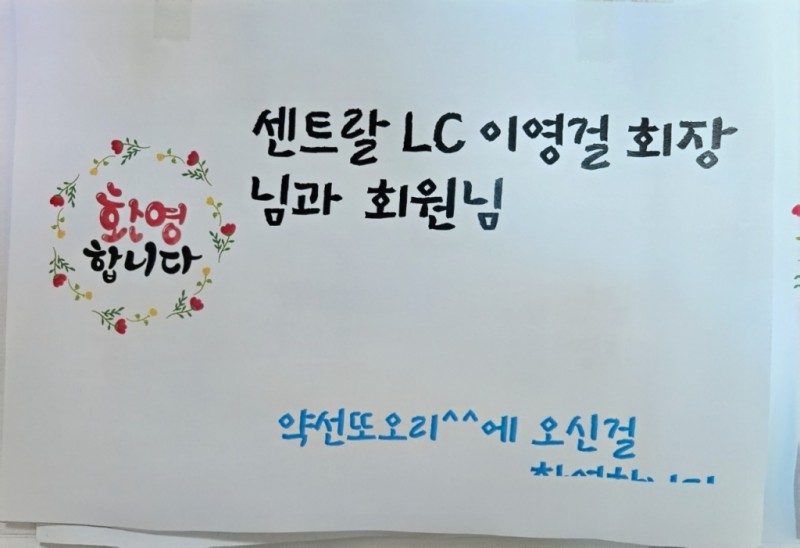 환영
합니다
센트랄 LC 이영걸 회장
님과 회원님
약선또오리^^에 오신걸